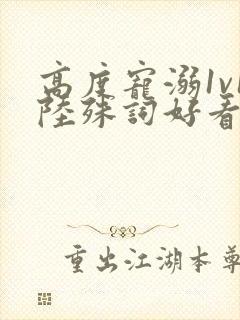 高度寵溺1v1
陸殊詞好看
重出江湖本尊